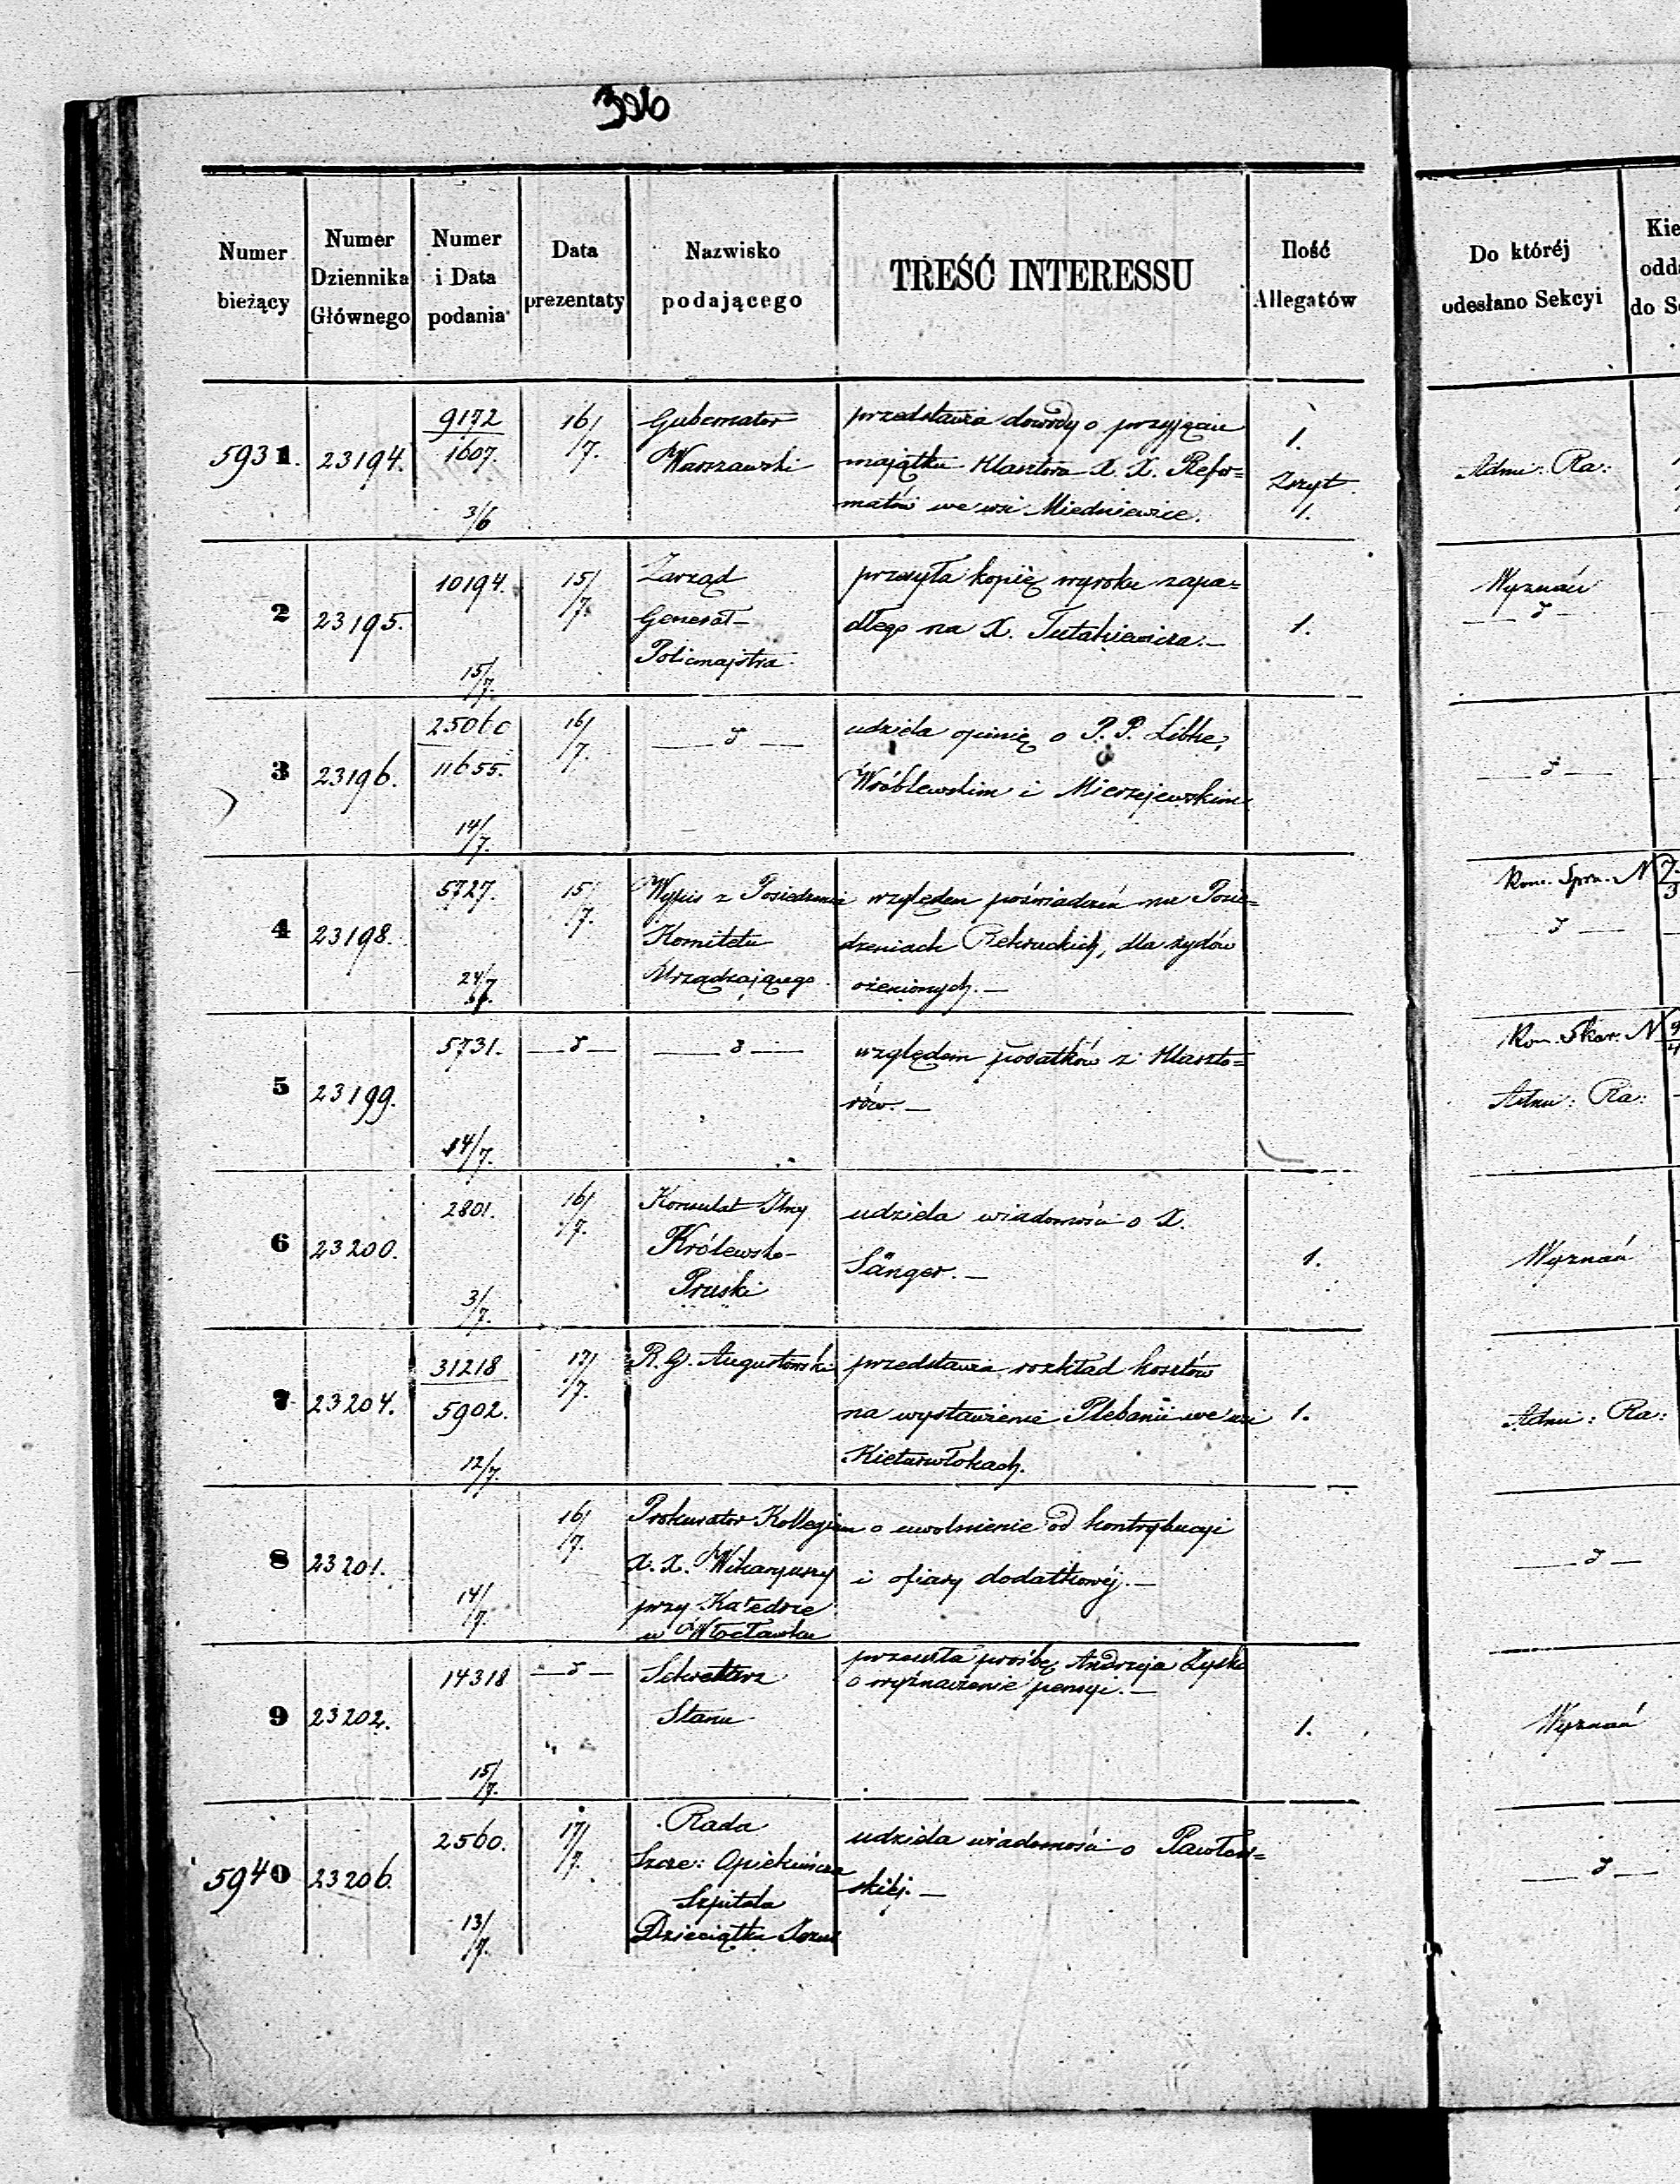 326
Numer bieżący
Numer Dziennika Głównego
Numer i Data podania
Data prezentaty
Nazwisko podającego
TREŚĆ INTERESSU
Ilość Allegatów
Do któréj odesłano Sekcyi
5931. 23194. 9172 / 1607. 3/6 16/7. Gubernator Warszawski
przedstawia dowody o przyjęciu
majątku Klasztora X. X. Refor=
matów we wsi Miedniewice.
1. Zszyt. 1.
Adm: Ra:
2 23195. 10194. 15/7. 15/7. Zarząd
Generał-
Policmajstra
przesyła kopię wyroku zapa=
dłego na X. Tutakiewicza.—
1.
Wyznań
3 23196. 11655. 14/7. 16/7. —„—
udziela opinię o P. P. Libke,
Wróblewskim i Mierzejewskim
—„—
4 23198. 5727. 24/7 15/7. Wypis z Posiedzenia
Komitetu
Urządzającego
względem poświadczeń na Posie=
dzeniach Rekruckich, dla żydów
ożenionych.—
Kom. Spra. N
—„—
5 23199. 5731. 14/7. —„— —„—
względem podatków z Klaszto=
rów.—
Kom. Skar. N
Adm: Ra:
6 23200. 2801. 3/7. 16/7. Konsulat Jlny
Królewsko-
Pruski
udziela wiadomości o X.
Sänger.—
1.
Wyznań
7 23204. 31218 / 5902. 12/7. 17/7. R. G. Augustowski
przedstawia rozkład kosztów
na wystawienie Plebanii we wsi
Kietarwłokach.
1.
Adm: Ra:
8 23201. 14/7. 16/7. Prokurator Kollegium
X. X. Wikaryuszy
przy Katedrze
w Włocławku
o uwolnienie od kontrybucyi
i ofiary dodatkowéj.—
—„—
9 23202. 14318 15/7. —„— Sekretarz
Stanu
przesyła prośbę Andrzeja Zyski
o wyznaczenie pensyi.—
1.
Wyznań
5940 23206. 2560. 13/7. 17/7. Rada
Szcze: Opiekuńcza
Szpitala
Dzieciątka Jezus
udziela wiadomości o Pawłow=
skiéj.—
—„—